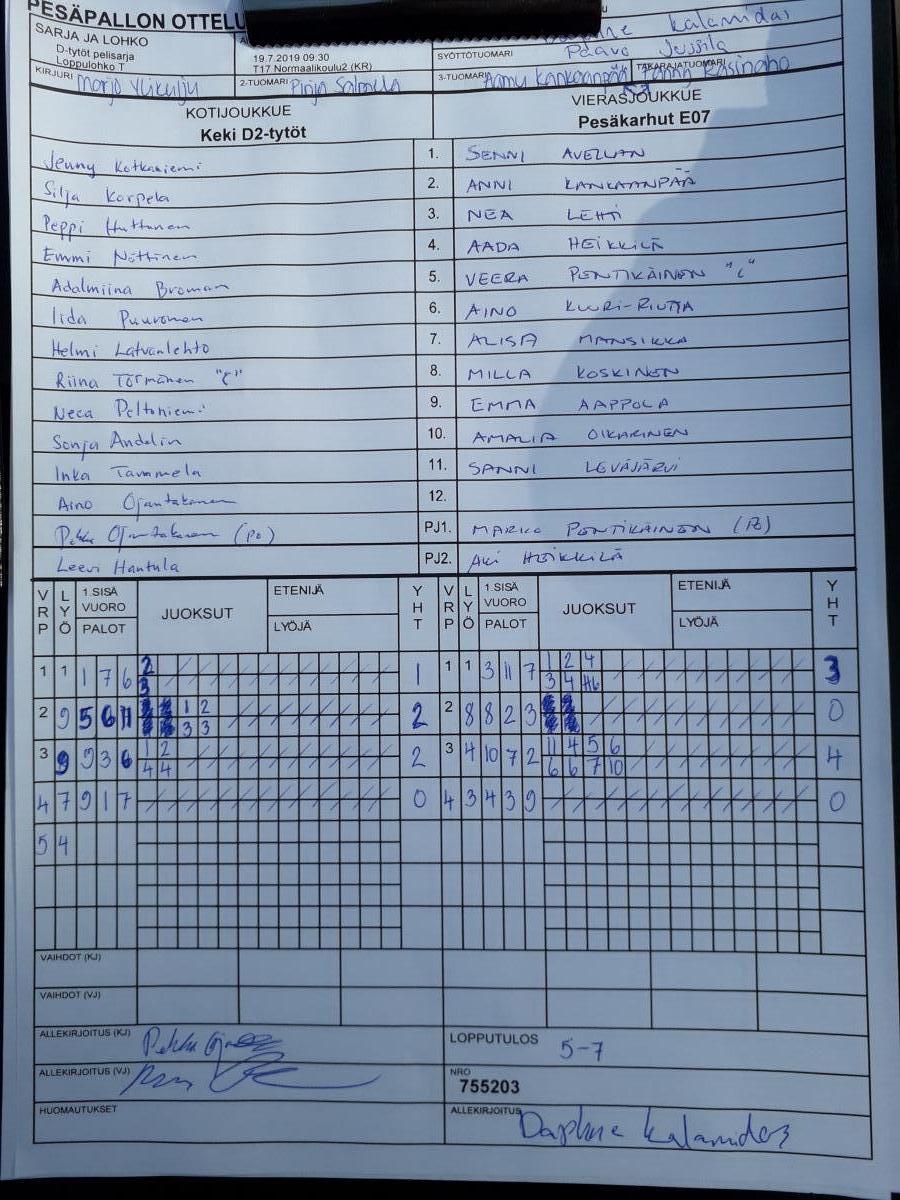 PESÄPALLON OTTELU
SARJA JA LOHKO
D-tytöt pelisarja
Loppulohko T
19.7.2019 09:30
T17 Normaalikoulu2 (KR)
Kalamidas
SYÖTTÖTUOMARI Paavo Jussila
KIRJURI Marjo Ylikulju
2-TUOMARI Pinja Salmela
3-TUOMARI Aamu Kankaanpää
TAKARAJATUOMARI Fanni Räsinaho
KOTIJOUKKUE
Keki D2-tytöt
VIERASJOUKKUE
Pesäkarhut E07
Jenny Kotkaniemi 1. SENNI AVELLAN
Silja Korpela 2. ANNI KANKAANPÄÄ
Peppi Huttunen 3. NEA LEHTI
Emmi Nöttinen 4. AADA HEIKKILÄ
Adalmiina Broman 5. VEERA PENTIKÄINEN "C"
Iida Puuronen 6. AINO KUURI-RIUTTA
Helmi Latvanlehto 7. ALISA MANSIKKA
Riina Törmänen "C" 8. MILLA KOSKINEN
Neea Peltoniemi 9. EMMA AAPPOLA
Sonja Andelin 10. AMALIA OIKARINEN
Inka Tammela 11. SANNI LEVÄJÄRVI
Aino Ojantakanen 12.
Pekka Ojantakanen (PO) PJ1. MARKO PENTIKÄINEN (PO)
Leevi Hantula PJ2. AKI HEIKKILÄ
VRP LYÖ 1.SISÄ VUORO PALOT JUOKSUT ETENIJÄ LYÖJÄ YHT VRP LYÖ 1.SISÄ VUORO PALOT JUOKSUT ETENIJÄ LYÖJÄ YHT
1 1 1 7 6 2 1 1 1 3 11 7 1 2 4 3
3 3 4
2 9 5 6 11 1 2 2 2 8 8 2 3 0
3 3
3 9 9 3 6 1 2 2 3 4 10 7 2 11 4 5 6 4
4 4 6 6 7 10
4 7 9 1 7 0 4 3 4 3 9 0
5 4
VAIHDOT (KJ)
VAIHDOT (VJ)
ALLEKIRJOITUS (KJ) Pekka
LOPPUTULOS 5-7
ALLEKIRJOITUS (VJ)
NRO
755203
HUOMAUTUKSET
ALLEKIRJOITUS Daphne Kalamidas